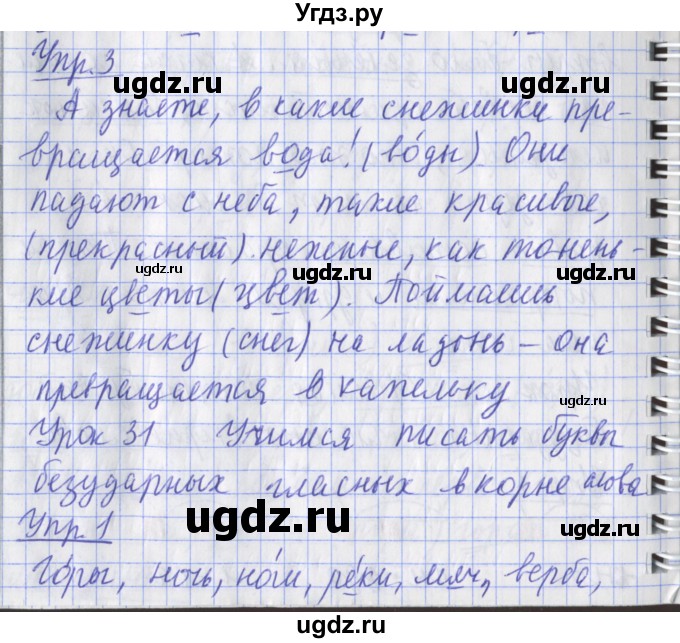 Угдз.ру
Упр. 3
ugdz.ru
А знаете, в какие снежинки пре-
вращается вода! (во́ды) Они
ugdz.ru
падают с неба, такие красивые,
(прекрасный) нежные, как тонень-
ugdz.ru ugdz.ru
кие цветы (цвет). Поймаешь
снежинку (снег) на ладонь – она
ugdz.ru
превращается в капельку
Урок 31 Учимся писать буквы
безударных гласных в корне слова
ugdz.ru ugdz.ru
Упр. 1
Го́ры, ночь, но́ги, ре́ки, мяч, верба,
ugdz.ru